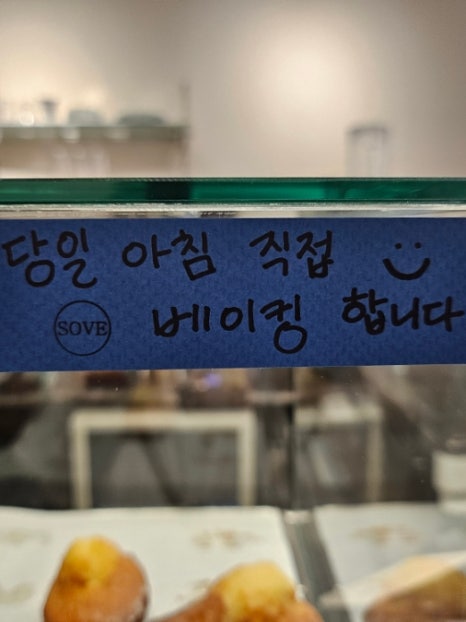 당일 아침 직접 :)
SOVE 베이킹 합니다